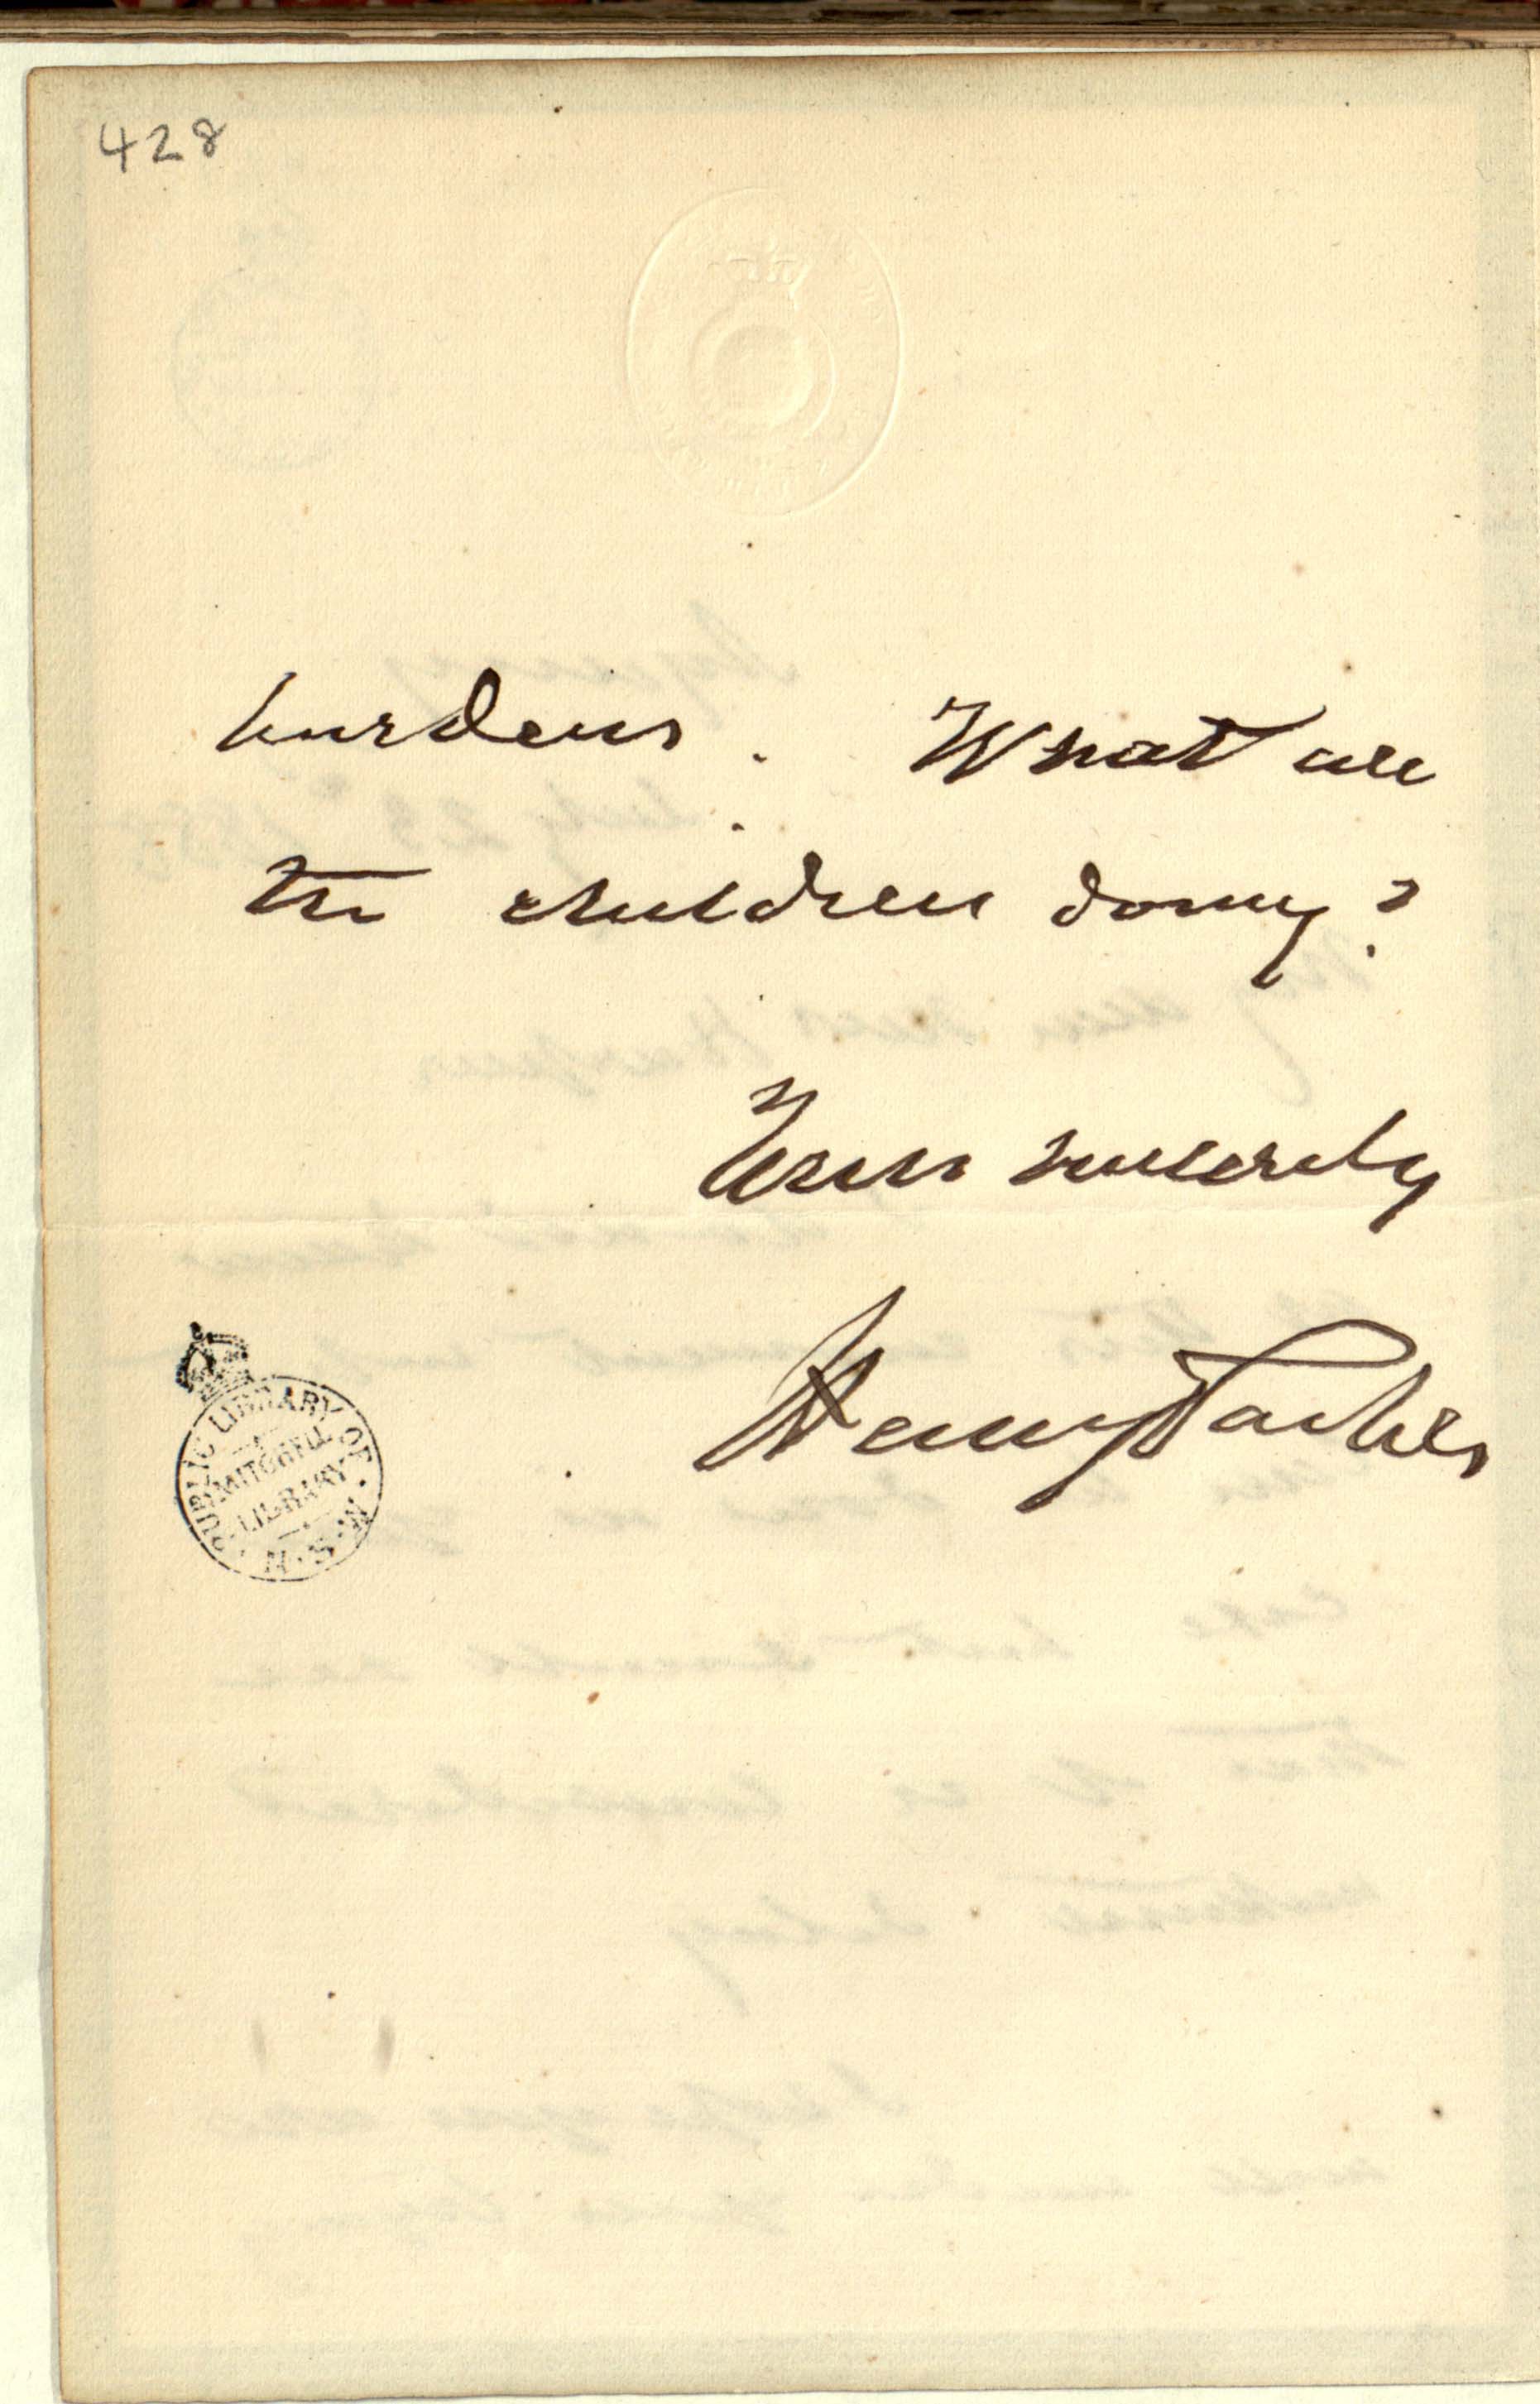 428
burdens. What are
the children doing?
Yours sincerely
Henry Parkes
PUBLIC LIBRARY OF N.S.W.
MITCHELL
LIBRARY